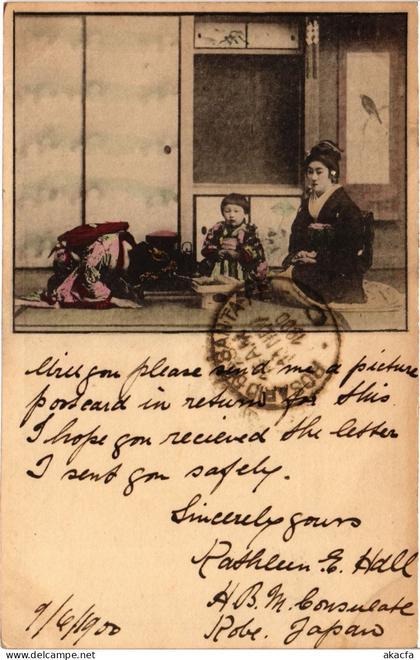 ROSARIO SANTA FE
1900
Will you please send me a picture
postcard in return for this.
I hope you recieved the letter
I sent you safely.
Sincerely yours
Kathleen E. Hall
H B. M. Consulate
9/6/1900 Kobe. Japan
www.akacfa.delcampe.net